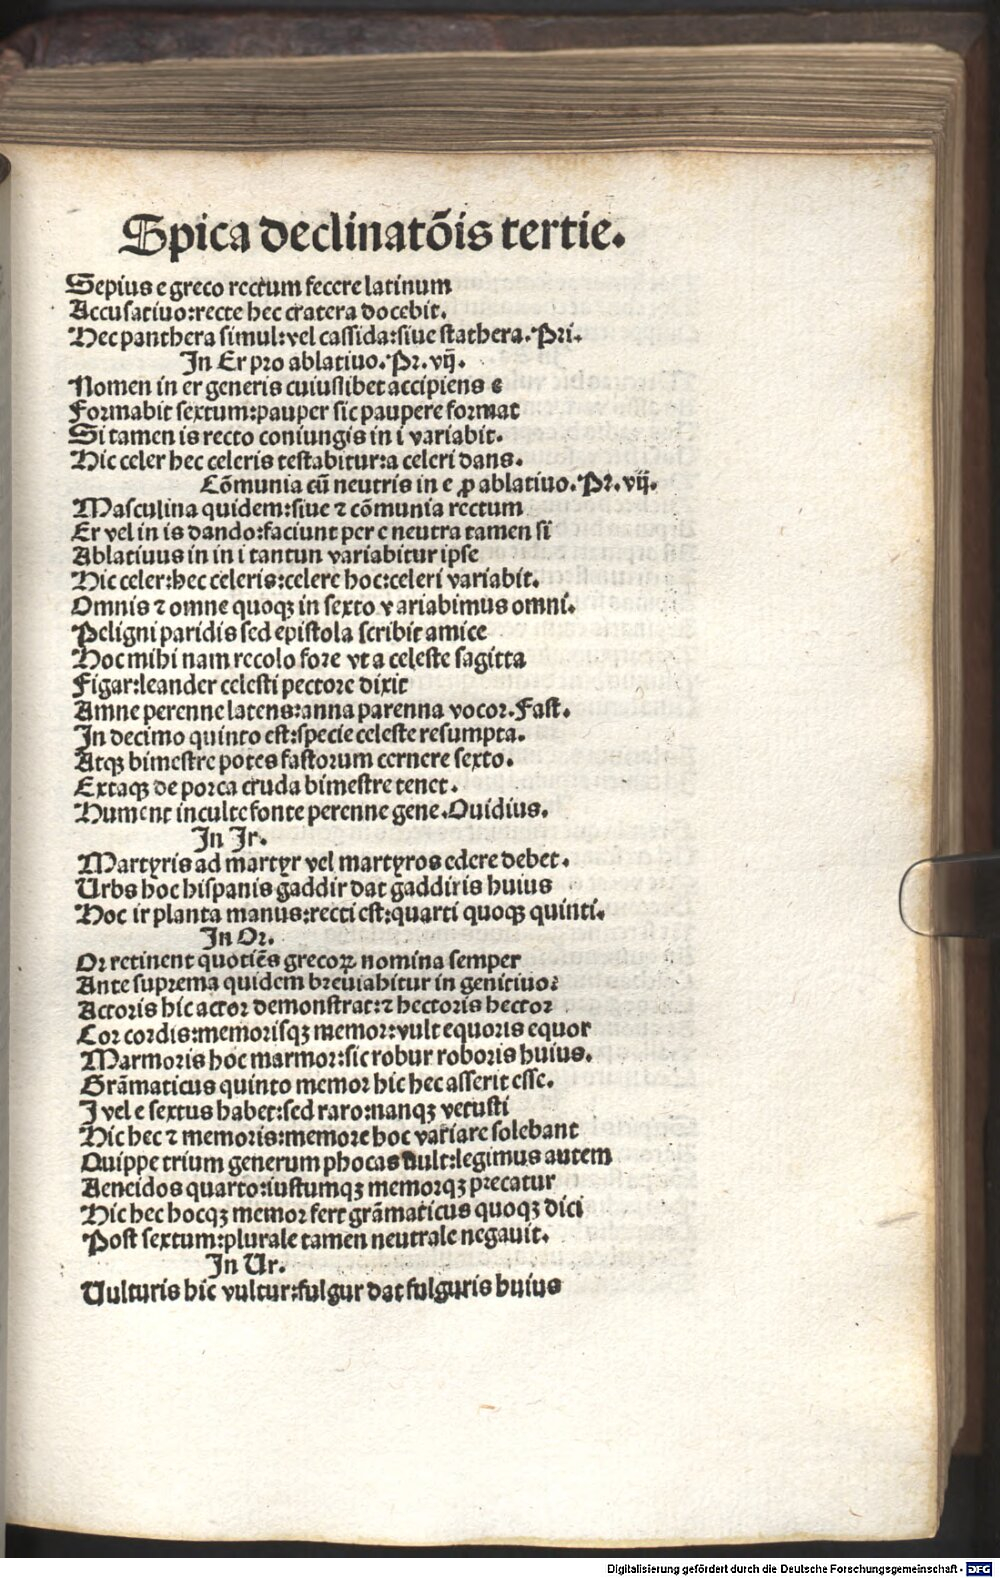 Spica declinatõis tertie.
Sepius e greco rectum fecere latinum
Accusatiuo:recte hec cratera docebit.
Hec panthera simul:vel cassida:siue stathera.Pri.
In Er pro ablatiuo.Pr.vij.
Nomen in er generis cuiuslibet accipiens e
Formabit sextum:pauper sic paupere format
Si tamen is recto coniungis in i variabit.
Hic celer hec celeris testabitur:a celeri dans.
Cõmunia cũ neutris in e ꝓ ablatiuo.Pr.vij.
Masculina quidem:siue ⁊ cõmunia rectum
Er vel in is dando:faciunt per e neutra tamen si
Ablatiuus in in i tantun variabitur ipse
Hic celer:hec celeris:celere hoc:celeri variabit.
Omnis ⁊ omne quoqꝫ in sexto variabimus omni.
Peligni paridis sed epistola scribit amice
Hoc mihi nam recolo fore vt a celeste sagitta
Figar:leander celesti pectore dixit
Amne perenne latens:anna parenna vocor.Fast.
In decimo quinto est:specie celeste resumpta.
Atqꝫ bimestre potes fastorum cernere sexto.
Extaqꝫ de porca cruda bimestre tenet.
Hument inculte fonte perenne gene.Ouidius.
In Ir.
Martyris ad martyr vel martyros edere debet.
Urbs hoc hispanis gaddir dat gaddiris huius
Hoc ir planta manus:recti est:quarti quoqꝫ quinti.
In Or.
Or retinent quotiẽs grecoꝝ nomina semper
Ante suprema quidem breuiabitur in genitiuo:
Actoris hic actor demonstrat:⁊ hectoris hector
Cor cordis:memorisqꝫ memor:vult equoris equor
Marmoris hoc marmor:sic robur roboris huius.
Grãmaticus quinto memor hic hec asserit esse.
I vel e sextus habet:sed raro:nanqꝫ vetusti
Hic hec ⁊ memoris:memore hoc variare solebant
Quippe trium generum phocas vult:legimus autem
Aeneidos quarto:iustumqꝫ memorqꝫ precatur
Hic hec hocqꝫ memor fert grãmaticus quoqꝫ dici
Post sextum:plurale tamen neutrale negauit.
In Ur.
Uulturis hic vultur:fulgur dat fulguris huius
Digitalisierung gefördert durch die Deutsche Forschungsgemeinschaft - DFG